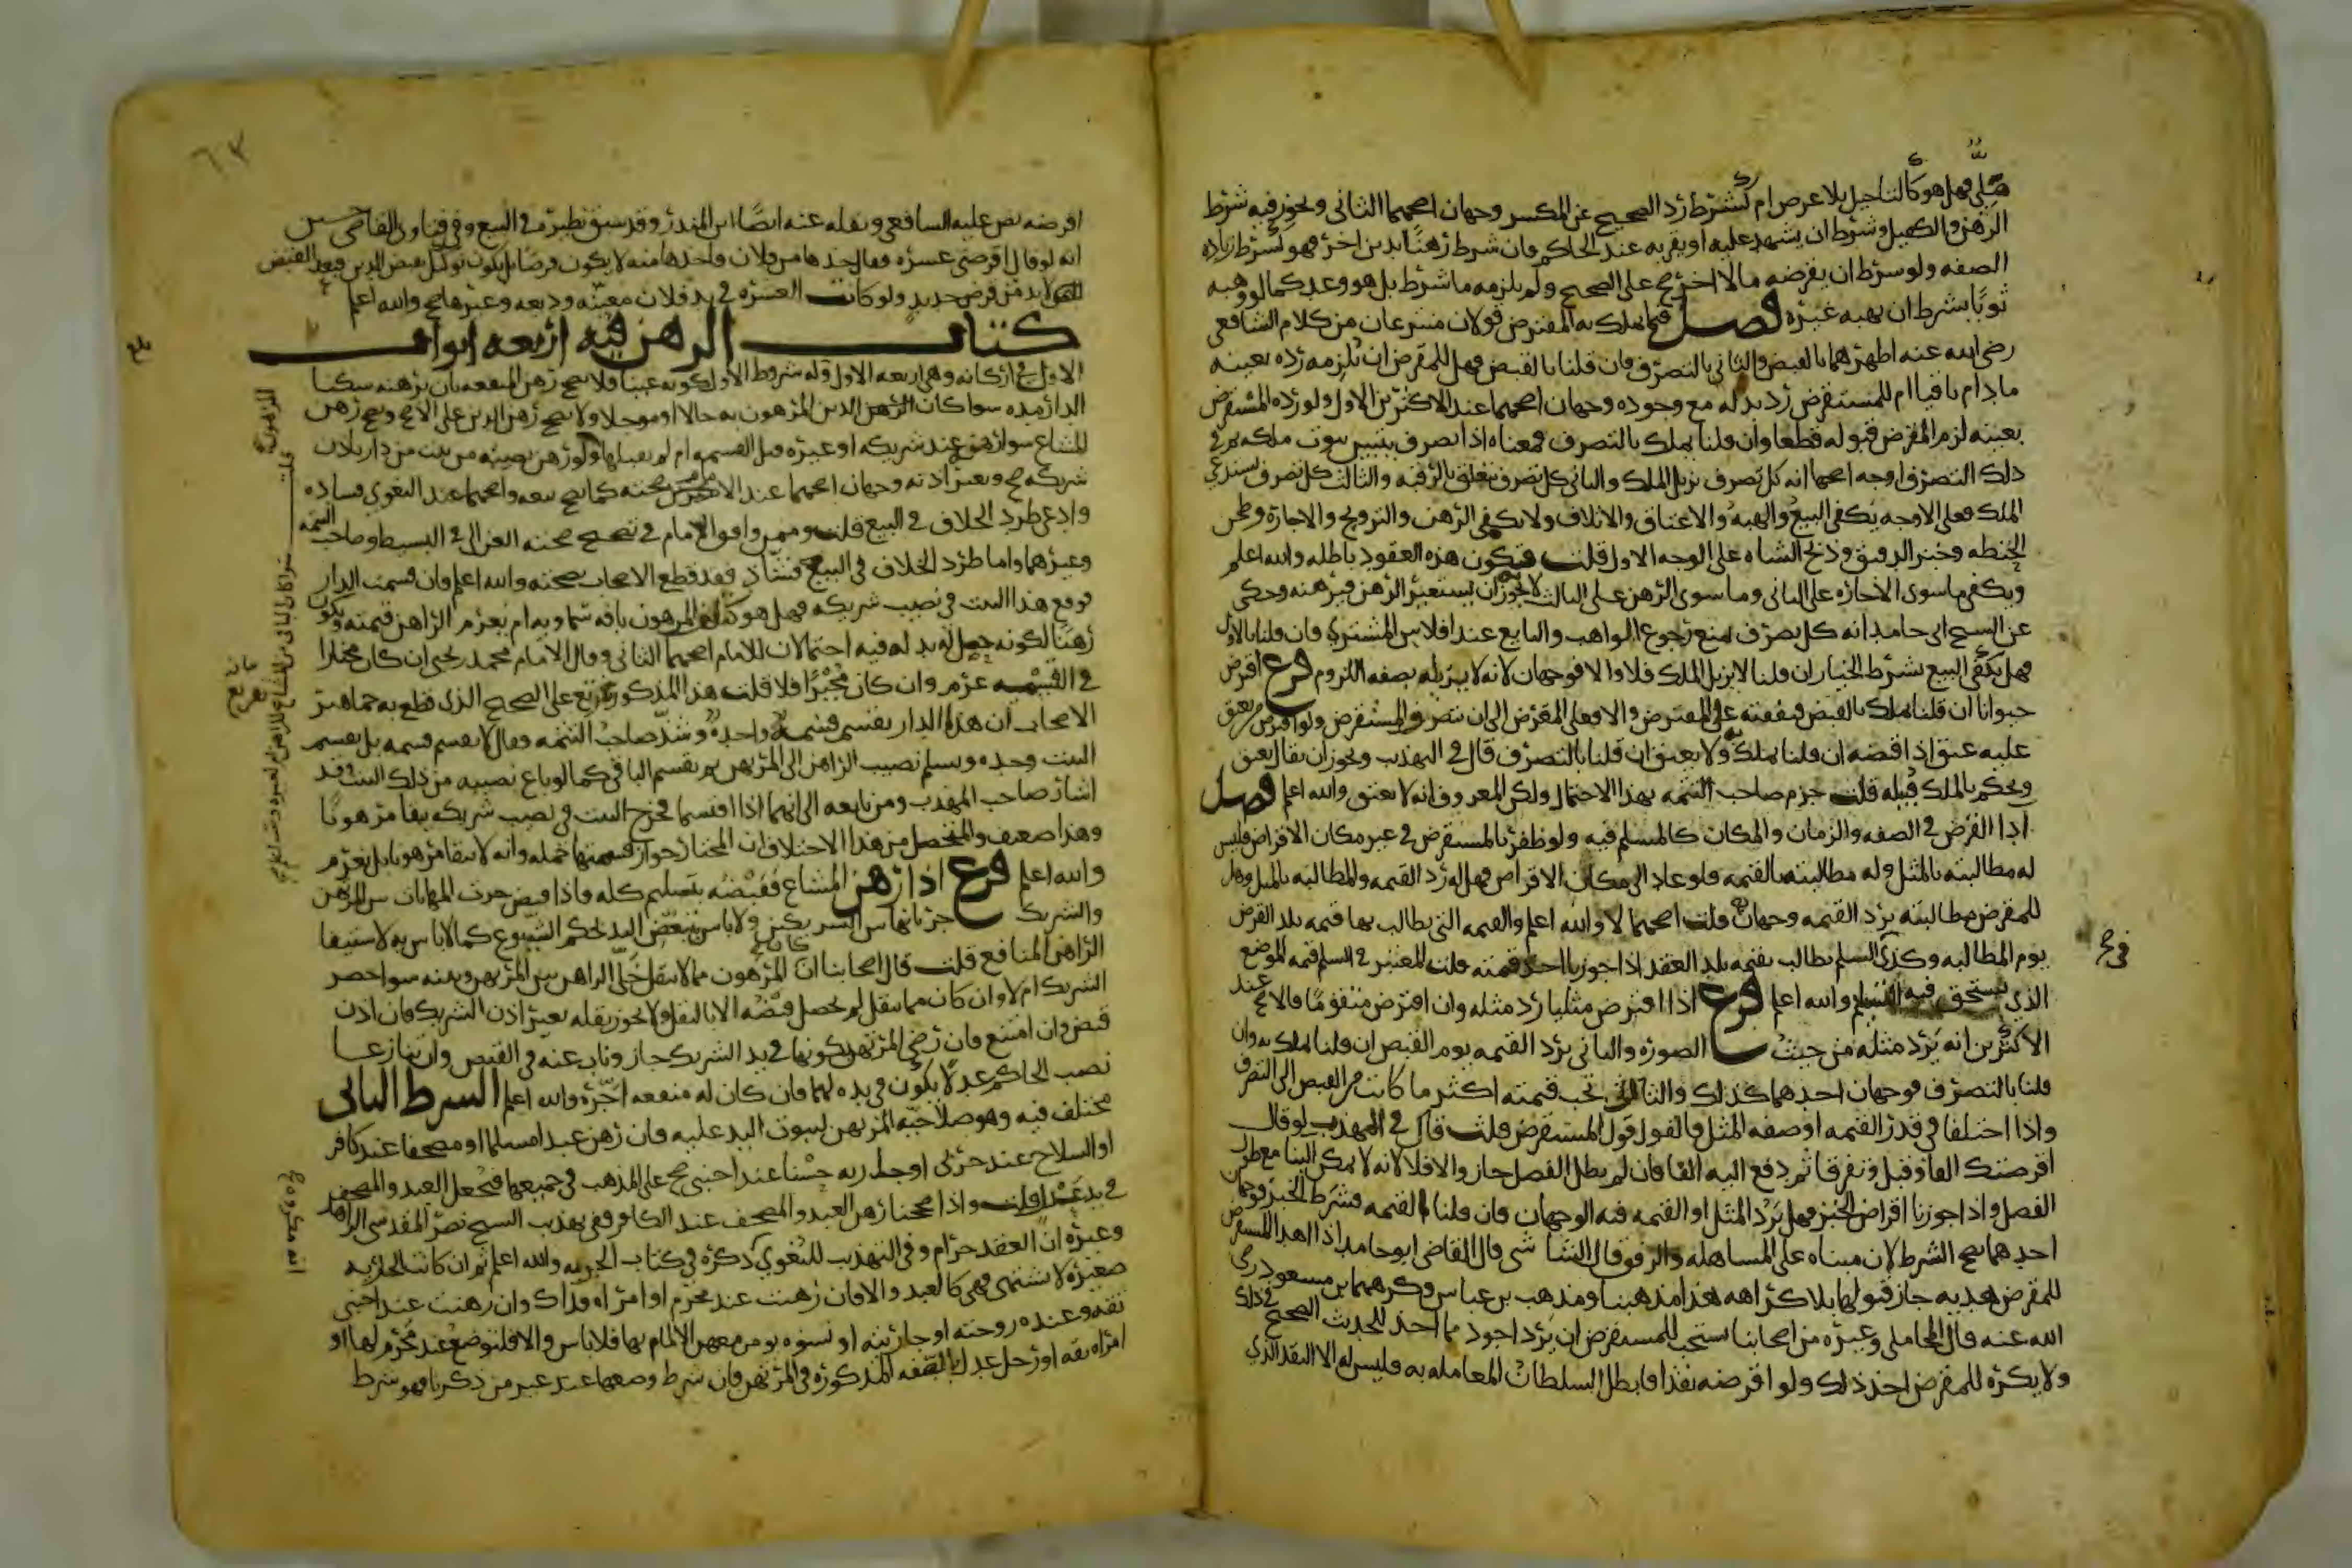 ملي فهل هو كالتاجيل بلا عرض ام كشرط رد الصحيح عن المكسر وجهان اصحهما الثاني ويجوز فيه شرط
الرهن والكفيل وشرط ان يشهد عليه او يقر به عند الحاكم وان شرط رهنا بدين اخر فهو كشرط زياده
الصفه ولو شرط ان يقرضه مالا اخر صح على الصحيح ولم يلزمه ما شرط بل هو وعد كما لو وهبه
ثوبا بشرط ان يهبه غيره فصل فيما يملك به المقترض قولان منتزعان من كلام الشافعي
رضي الله عنه اظهرهما بالقبض والثاني بالتصرف فان قلنا بالقبض فهل للمقرض ان يلزمه رده بعينه
ما دام باقيا ام للمستقرض رد بدله مع وجوده وجهان اصحهما عند الاكثرين الاول ولو رده المستقرض
بعينه لزم المقرض قبوله قطعا وان قلنا يملك بالتصرف فمعناه اذا تصرف يتبين ثبوت ملكه ثم في
ذلك التصرف اوجه اصحها انه كل تصرف يزيل الملك والثاني كل تصرف يتعلق بالرقبه والثالث كل تصرف يستدعي
الملك فعلى الاوجه يكفي البيع والهبه والاعتاق والاتلاف ولا يكفي الرهن والتزويج والاجازة وطحن
الحنطه وخبز الدقيق وذبح الشاه على الوجه الاول قلت فتكون هذه العقود باطله والله اعلم
ويكفي ما سوى الاجازه على الثاني وما سوى الرهن على الثالث لانه يجوز ان يستعير الرهن فيرهنه وحكى
عن الشيخ ابي حامد انه كل تصرف يمنع رجوع الواهب والبايع عند افلاس المشتري وان قلنا بالاول
فهل يكفي البيع بشرط الخيار ان قلنا لا يزيل الملك فلا والا فوجهان لانه لا يزيله بصفه اللزوم فرع اقرض
حيوانا ان قلنا يملك بالقبض فنفقته على المقترض والا فعلى المقرض الى ان يتصرف المستقرض ولو اقترض من يعتق
عليه عتق اذا قبضه ان قلنا يملك به ولا يعتق ان قلنا بالتصرف قال في التهذيب ويجوز ان يقال يعتق
ويحكم بالملك قبيله قلت جزم صاحب التتمه بهذا الاحتمال ولكن المعروف انه لا يعتق والله اعلم فصل
اداا القرض في الصفه والزمان والمكان كالمسلم فيه ولو ظفر بالمستقرض في غير مكان الاقراض فليس
له مطالبته بالمثل وله مطالبته بالقيمه فلو عاد الى مكان الاقراض فهل له رد القيمه والمطالبه بالمثل وهل
للمقرض مطالبته برد القيمه وجهان قلت اصحهما لا والله اعلم والقيمه التي يطالب بها قيمه بلد القرض
يوم المطالبه وكذى السلم يطالب بقيمه بلد العقد اذا جوزنا اخذ قيمته قلت المعتبر في السلم قيمه الموضع
الذي يستحق فيه التسليم والله اعلم فرع اذا اقترض مثليا رد مثله وان اقترض متقوما فالاصح عند
الاكثرين انه يرد مثله من حيث الصوره والثاني يرد القيمه يوم القبض ان قلنا يملك به وان
قلنا بالتصرف فوجهان احدهما كذلك والثاني تجب قيمته اكثر ما كانت من القبض الى التصرف
واذا اختلفا في قدر القيمه او صفه المثل فالقول قول المستقرض قلت قال في المهذب لو قال
اقرضتك الفا وقبل وتفرقا ثم دفع اليه الفا فان لم يطل الفصل جاز والا فلا لانه لا يمكن البنا مع طول
الفصل واذا جوزنا اقراض الخبز فهل يرد المثل او القيمه فيه الوجهان فان قلنا القيمه فشرط الخبز فوجهان
احدهما يصح الشرط لان مبناه على المساهله والرفق قال الشاشي قال القاضي ابو حامد اذا اهدا المستقرض
للمقرض هديه جاز قبولها بلا كراهه هذا مذهبنا ومذهب بن عباس وكرهها بن مسعود رضي
الله عنه قال المحاملي وغيره من اصحابنا يستحب للمستقرض ان يرد اجود مما اخذ للحديث الصحيح في ذلك
ولا يكره للمقرض اخذ ذلك ولو اقرضه نقدا فابطل السلطان المعامله به فليس له الا النقد الذي
فرع
٦٣
اقرضه نص عليه الشافعي ونقله عنه ايضا ابن المنذر وقد سبق نظيره في البيع وفي فتاوى القاضي حسين
انه لو قال اقرضني عشره فقال خذها من فلان فاخذها منه لا يكون قرضا بل يكون توكيل بقبض الدين فبعد القبض
لا بد من قرض جديد ولو كانت العشره في يد فلان معينه وديعه وغيرها صح والله اعلم
كتاب الرهن فيه اربعه ابواب
الاول في اركانه وهي اربعه الاول وله شروط الاول كونه عينا فلا يصح رهن المنفعه بان يرهنه سكنا
الدار مده سوا كان الدين المرهون به حالا او موجلا ولا يصح رهن الدين على الاصح ويصح رهن
المشاع سوا رهن عند شريكه او غيره قبل القسمه ام لم يقبلها ولو رهن نصيبه من بيت من دار باذن
شريكه صح وبغير اذنه وجهان اصحهما عند الامام صحته كما يصح بيعه واصحهما عند البغوي فساده
وادعى طرد الخلاف في البيع قلت وممن وافق الامام في تصحيح صحته الغزالي في البسيط وصاحب التتمه
وغيرهما واما طرد الخلاف في البيع فشاذ فقد قطع الاصحاب بصحته والله اعلم وان قسمت الدار
فوقع هذا البيت في نصيب شريكه فهل هو كتلف المرهون بافه سماويه ام يغرم الراهن قيمته ويكون
رهنا لكونه حصل له بدله فيه احتمالان للامام اصحهما الثاني وقال الامام محمد بن يحيى ان كان مختارا
في القسمه غرم وان كان مجبرا فلا قلت هذا المذكور تفريع على الصحيح الذي قطع به جماهير
الاصحاب ان هذه الدار تقسم قسمه واحده وشذ صاحب التتمه فقال لا تقسم قسمه بل يقسم
البيت وحده ويسلم نصيب الراهن الى المرتهن ثم يقسم الباقي كما لو باع نصيبه من ذلك البيت وقد
اشار صاحب المهذب ومن تابعه الى انهما اذا اقتسما فخرج البيت في نصيب شريكه يبقا مرهونا
وهذا ضعيف والمتحصل من هذا الاختلاف ان المختار جواز قسمتها جمله وانه لا يبقا مرهونا بل يغرم
والله اعلم فرع اذا رهن المشاع فقبضه بتسليم كله فاذا قبض جرت المهاياه بين المرتهن
والشريك جريانها بين الشريكين ولا باس بتبعض اليد لحكم الشيوع كما لا باس به لاستيفا
الراهن المنافع قلت قال اصحابنا ان كان المرهون مما لا ينقل خلى الراهن بين المرتهن وبينه سوا حضر
الشريك ام لا وان كان مما ينقل لم يحصل قبضه الا بالنقل ولا يجوز نقله بغير اذن الشريك فان اذن
قبض وان امتنع فان رضي المرتهن بكونها في يد الشريك جاز وناب عنه في القبض وان تنازعا
نصب الحاكم عدلا يكون في يده لهما فان كان له منفعه اجره والله اعلم الشرط الثاني
مختلف فيه وهو صلاحيه المرتهن لثبوت اليد عليه فان رهن عبدا مسلما او مصحفا عند كافر
او السلاح عند حربي او جاريه حسنا عند اجنبي صح على المذهب في جميعها فيجعل العبد والمصحف
في يد عدل قلت واذا صححنا رهن العبد والمصحف عند الكافر ففي تهذيب الشيخ نصر المقدسي الزاهد
وغيره ان العقد حرام وفي التهذيب للبغوي ذكره في كتاب الجزيه والله اعلم ثم ان كانت الجاريه
صغيره لا تشتهى فهي كالعبد والا فان رهنت عند محرم او امراه فذاك وان رهنت عند اجنبي
ثقه وعنده زوجته او جاريته او نسوه يومن معهن الالمام بها فلا باس والا فلتوضع عند محرم لها او
امراه ثقه او رجل عدل بالصفه المذكوره في المرتهن فان شرط وضعها عند غير من ذكرنا فهو شرط
بلغ
تفريع
انه مكروه صح